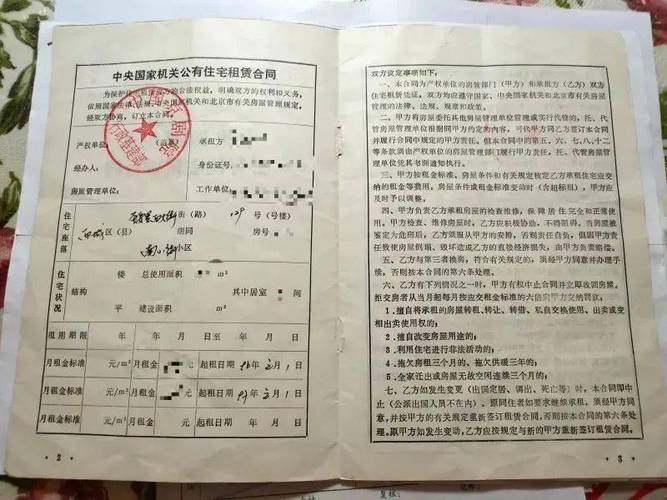 中央国家机关公有住宅租赁合同
为保护住宅租赁双方的合法权益，明确双方的权利和义务，
依照国家法律、法规、中央国家机关和北京市有关房屋管理规定，
经双方协商，订立本合同。
产权单位： （盖章） 承租方：
经办人： 身份证号：
房屋管理单位： 工作单位：
住宅座落
西城区（县） 大街 街（路） 129 号（号楼）
胡同 房号 号
小区
住宅状况
楼 总使用面积 m²
结构 其中居室 间
平 建设面积 m²
租用期限 年 年 年 年 年
月租金标准 元/m² 月租金 起租日期 年 月 1 日
月租金标准 元/m² 月租金 起租日期 年 月 1 日
月租金标准 元/m² 月租金 元 起租日期 年 月 日
· 2 ·
双方议定事项如下：
一、本合同为产权单位的房管部门（甲方）和承租方（乙方）双方
住宅租赁凭证。双方均应遵守国家、中央国家机关和北京市有关房屋
管理的法律、法规、规章和政策。
二、甲方有将房屋委托其他房屋管理单位管理或实行代管的，托、代
管房屋管理单位根据同甲方约定的内容，可代甲方同乙方签订本合同
并履行合同中规定的甲方的一般责任。但本合同中第五、六、七、八、十二
等条款须由产权单位的房屋管理部门履行甲方责任，托、代管房屋管理
单位凭其书面通知执行。
三、甲方按租金标准、房屋条件和有关规定核定乙方承租住宅应交
纳的租金等费用。房屋条件或租金标准变动时（含超标租），甲方应
及时予以调整。
四、甲方负责乙方承租房屋的检查维修，保障居住完全和正常使
用。甲方检查、维修房屋时，乙方应积极协助，不得阻碍。当房屋被
鉴定为危房后，乙方须服从甲方的安排，否则责任自负，但因甲方责任
致使房屋倒塌、毁坏造成乙方的直接经济损失，由甲方负责赔偿。
五、乙方与第三者换房，符合有关规定的，须经甲方同意并办理手
续，否则按本合同的第六条处理。
六、乙方有下列情况之一时，甲方有权中止合同并立即收回房屋。
拒交房者从当月起每月按应交租金标准的六倍向甲方交纳罚款：
1.擅自将承租的房屋转租、转让、转借、私自交换使用、出卖或变
相出卖使用权的；
2.擅自改变房屋用途的；
3.利用住宅进行非法活动的；
4.拖欠房租三个月的、拖欠供暖三年的；
5.全家迁出或房屋无故空闲连续三个月的；
七、乙方如发生变更（出国定居、调出、死亡等）时，本合同即中
止（公派出国人员不在内）。原同住者如要求继续承租，须经甲方同
意，并按甲方的有关规定重新签订租赁合同，否则按本合同的第六条处
理。原甲方如发生变动，乙方应按规定与新的甲方重新签订租赁合同。
· 3 ·